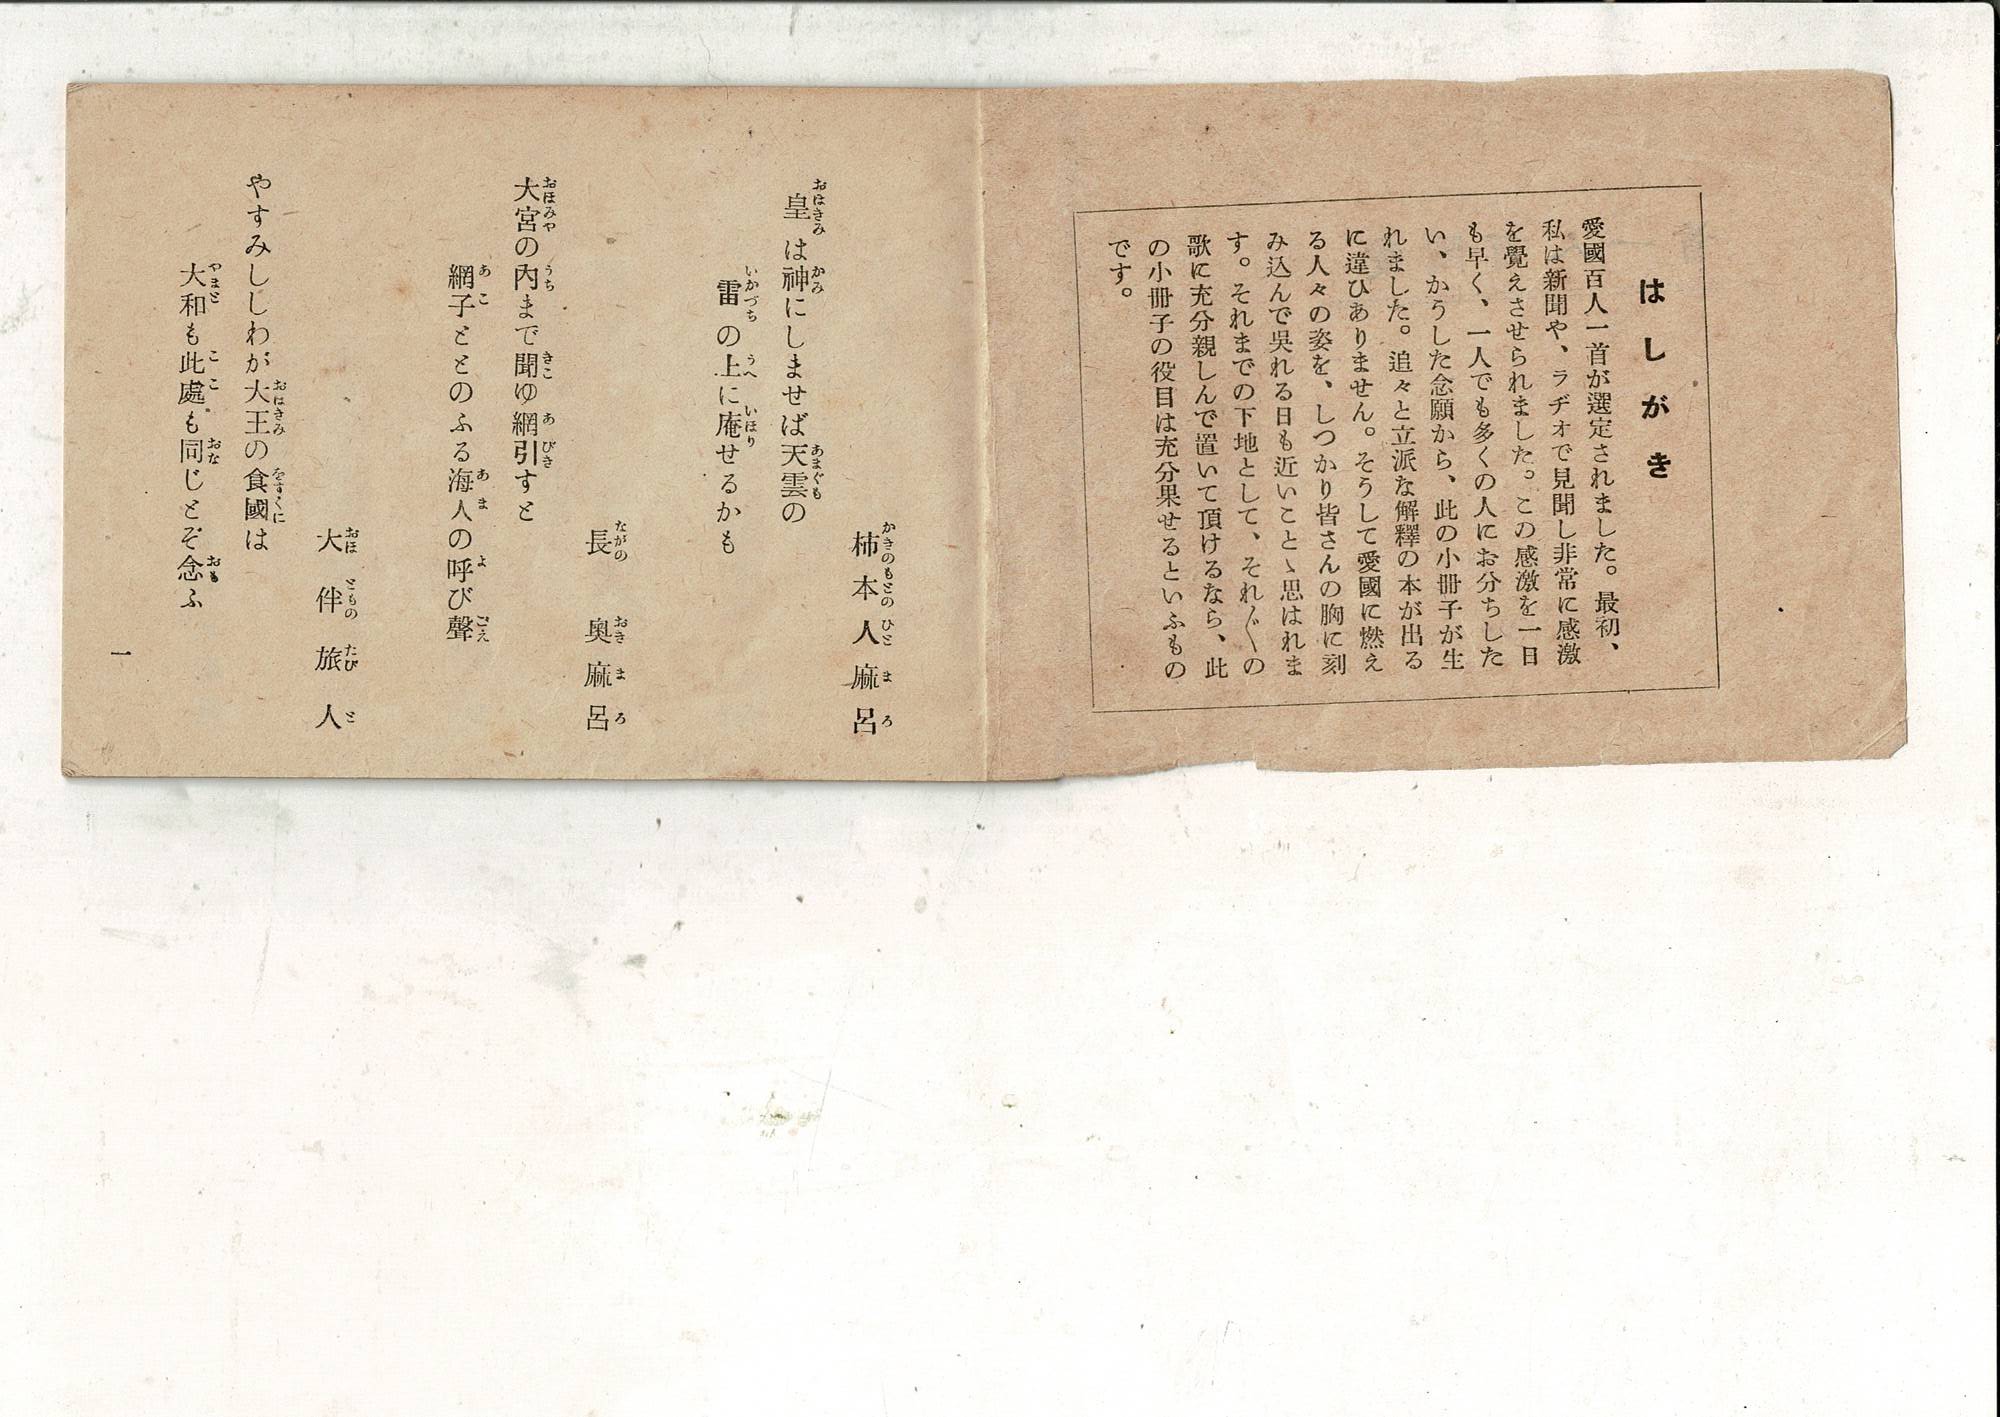 はしがき
愛國百人一首が選定されました。最初、
私は新聞や、ラヂオで見聞し非常に感激
を覺えさせられました。この感激を一日
も早く、一人でも多くの人にお分ちした
い、かうした念願から、此の小冊子が生
れました。追々と立派な解釋の本が出る
に違ひありません。そうして愛國に燃え
る人々の姿を、しつかり皆さんの胸に刻
み込んで呉れる日も近いことゝ思はれま
す。それまでの下地として、それ〴〵の
歌に充分親しんで置いて頂けるなら、此
の小冊子の役目は充分果せるといふもの
です。
柿本人麻呂
皇は神にしませば天雲の
雷の上に庵せるかも
長奥麻呂
大宮の内まで聞ゆ網引すと
網子ととのふる海人の呼び聲
大伴旅人
やすみししわが大王の食國は
大和も此處も同じとぞ念ふ
一